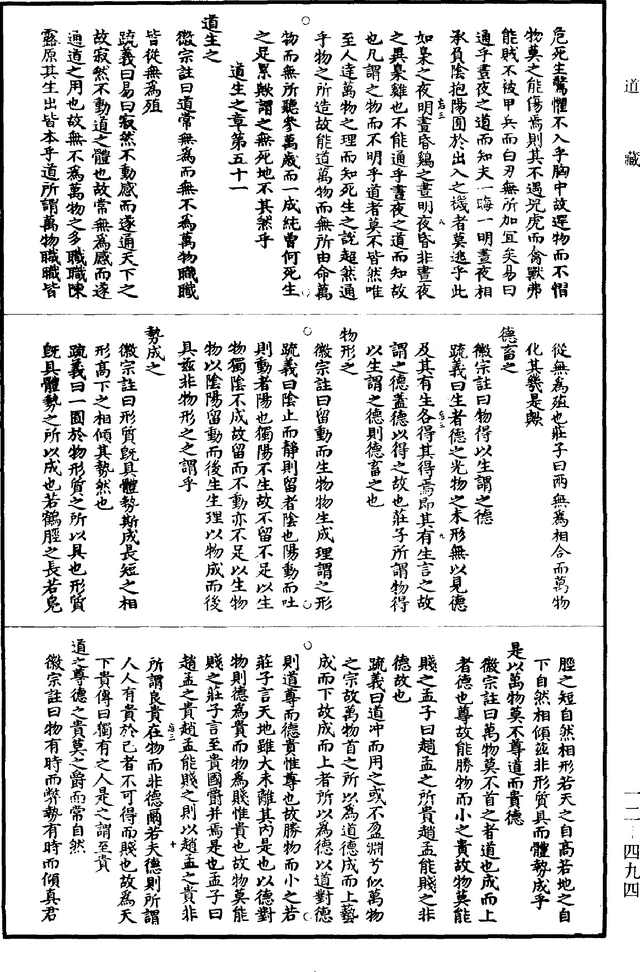 道藏
危死生驚懼不入乎胸中故遻物而不慴
物莫之能傷焉則其不遇兕虎而禽獸弗
能賊不被甲兵而白刃無所加宜矣易曰
通乎晝夜之道而知夫一晦一明晝夜相
承負陰抱陽囿於出入之機者莫逃乎此
如梟之夜明晝昏鷄之晝明夜昏非晝夜
之異梟雞也不能通乎晝夜之道而知故
也凡謂之物而不明乎道者莫不皆然唯
至人達萬物之理而知死生之說超然通
乎物之所造故能道萬物而無所由命萬
物而無所聽參萬歲而一成純曾何死生
之足累歟謂之無死地不其然乎
道生之章第五十一
道生之
徽宗註曰道常無為而無不為萬物職職
皆從無為殖
疏義曰易曰寂然不動感而遂通天下之
故寂然不動道之體也故常無為感而遂
通道之用也故無不為萬物之多職職陳
露原其生出皆本乎道所謂萬物職職皆
從無為殖也莊子曰兩無為相合而萬物
化其幾是歟
德畜之
徽宗註曰物得以生謂之德
疏義曰生者德之光物之未形無以見德
及其有生各得其得焉即其有生言之故
謂之德蓋德以得之故也莊子所謂物得
以生謂之德則德畜之也
物形之
徽宗註曰留動而生物物生成理謂之形
疏義曰陰止而靜則留者陰也陽動而吐
則動者陽也獨陽不生故不留不足以生
物獨陰不成故留而不動亦不足以生物
物以陰陽留動而後生生理以物成而後
具茲非物形之之謂乎
勢成之
徽宗註曰形質旣具體勢斯成長短之相
形高下之相傾其勢然也
疏義曰一囿於物形質之所以具也形質
旣具體勢之所以成也若鶴脛之長若鳧
脛之短自然相形若天之自高若地之自
下自然相傾茲非形質具而體勢成乎
是以萬物莫不尊道而貴德
徽宗註曰萬物莫不首之者道也成而上
者德也尊故能勝物而小之貴故物莫能
賤之孟子曰趙孟之所貴趙孟能賤之非
德故也
疏義曰道沖而用之或不盈淵兮似萬物
之宗故萬物首之所以為道德成而上藝
成而下故成而上者所以為德以道對德
則道尊而德貴惟尊也故勝物而小之若
莊子言天地雖大未離其內是也以德對
物則德為貴而物為賤惟貴也故物莫能
賤之莊子言至貴國爵并焉是也孟子曰
趙孟之貴趙孟能賤之則以趙孟之貴非
所謂良貴在物而非德爾若夫德則所謂
人人有貴於己者不可得而賤也故為天
下貴傳曰獨有之人是之謂至貴
道之尊德之貴莫之爵而常自然
徽宗註曰物有時而弊勢有時而傾真君
一一－四九四